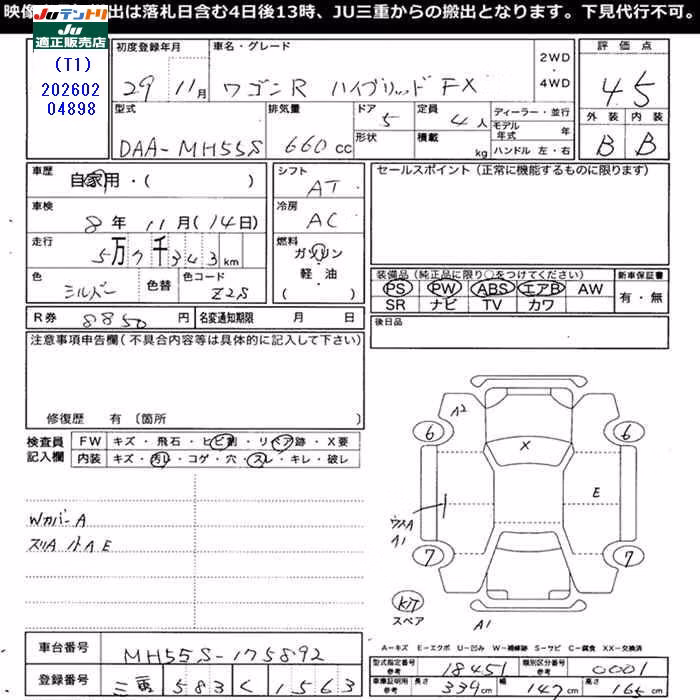 映像 出は落札日含む4日後13時、JU三重からの搬出となります。下見代行不可。
JUテントリ
JU適正販売店
(T1)
202602
04898
初度登録年月 29 11月
車名・グレード ワゴンR ハイブリッド FX
2WD・4WD
評価点 4.5
外装 B 内装 B
型式 DAA-MH55S
排気量 660cc
ドア 5 形状
定員 4人 積載 kg
ディーラー・並行
モデル年式 年
ハンドル 左・右
車歴 自家用・( )
シフト AT
セールスポイント(正常に機能するものに限ります)
車検 8年 11月(14日)
冷房 AC
走行 5万7千343km
燃料 ガソリン 軽・油 ( )
色 シルバー 色替 色コード Z2S
装備品(純正品に限り○をつけてください) 新車保証書
PS PW ABS エアB AW 有・無
SR ナビ TV カワ
R券 8850円 名変通知期限 月 日
後日品
注意事項申告欄(不具合内容等は具体的に記入して下さい)
修復歴 有 (箇所 )
検査員記入欄
FW キズ・飛石・ヒビ割・リペア跡・X要
内装 キズ・汚レ・コゲ・穴・スレ・キレ・破レ
Wカバー A
スリA ハトA E
A2
6 6
X
E
ウスA
A1
7 7
KIT
スペア
A1
A-キズ E-エクボ U-凹み W-補修跡 S-サビ C-腐食 XX-交換済
車台番号 MH55S-175892
登録番号 三重 583 く 1563
型式指定番号 参考 18451 類別区分番号 参考 0001
車庫証明用 参考 長さ 339cm 幅 147cm 高さ 165cm